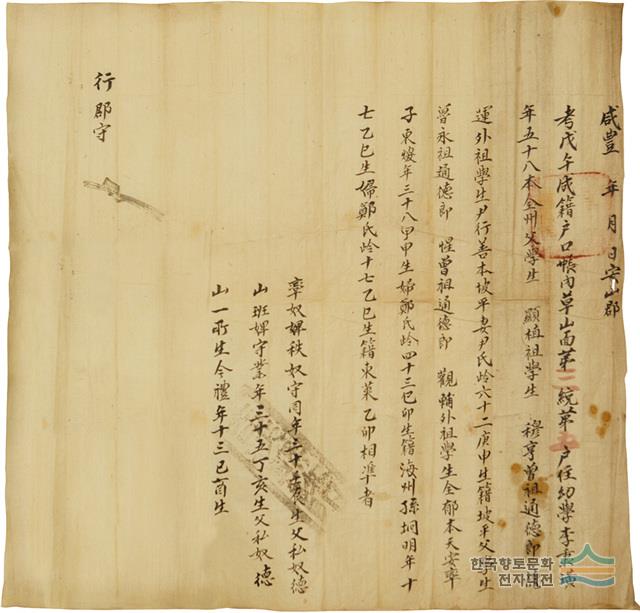 咸豊 年 月 日安山郡
考戊午成籍戶口帳內草山面第二統第五戶住幼學李
年五十八本全州父學生 顯植祖學生 穆亨曾祖通德郎
運外祖學生尹行善本坡平妻尹氏岭六十二庚申生籍坡平父學生
曾永祖通德郎 惺曾祖通德郎 觀輔外祖學生全郁本天安率
子東燮年三十八甲申生婦鄭氏岭四十三己卯生籍海州孫垌明年十
七乙巳生婦鄭氏岭十七乙巳生籍東萊乙卯相準者
率奴婢秩奴守同年三十 辰生父私奴德
山班婢守業年三十五丁亥生父私奴德
山一所生今禮年十三己酉生
行郡守
한국향토문화
전자대전